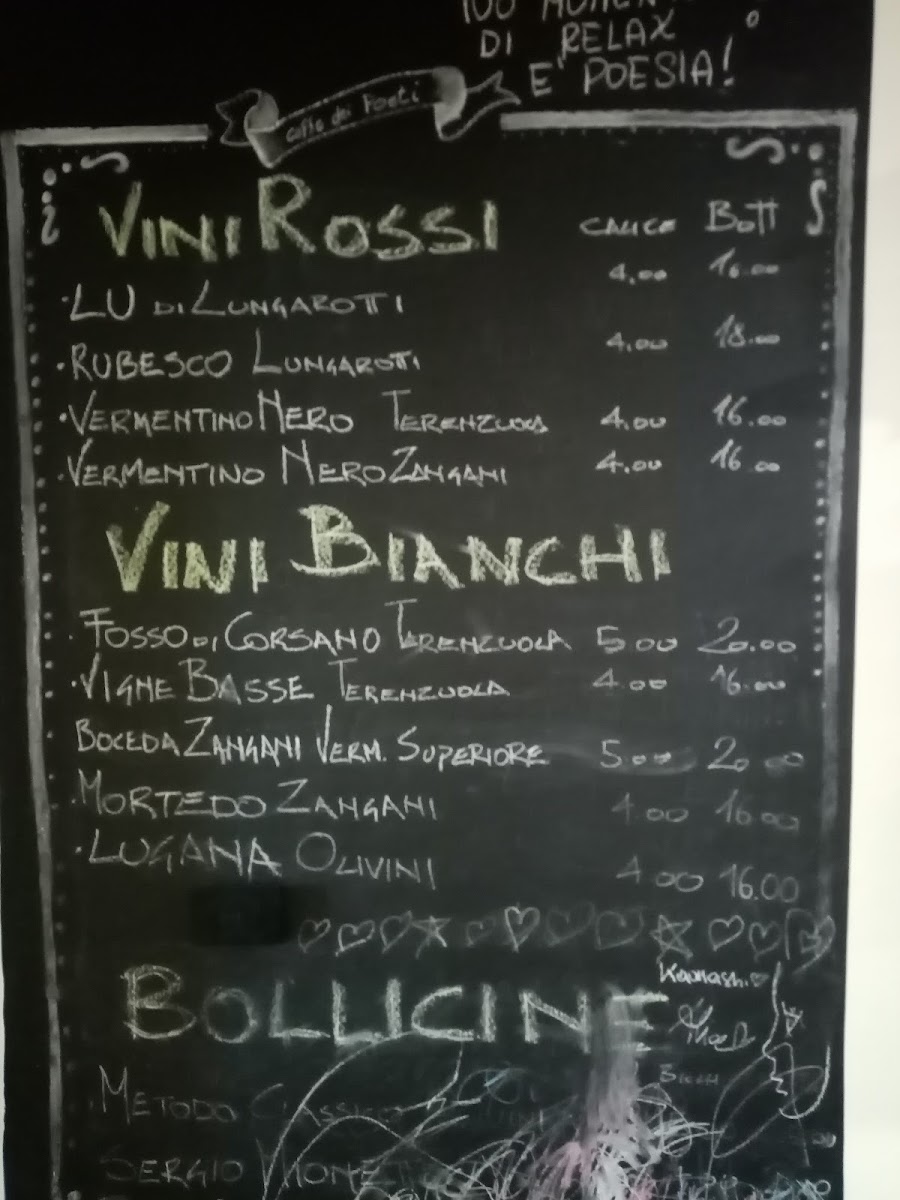 DI RELAX
E' POESIA!
Caffe dei Poeti
VINI ROSSI
CALICE BOTT
4.00 16.00
· LU DI LUNGAROTTI
4.00 18.00
· RUBESCO LUNGAROTTI
· VERMENTINO NERO TERENZUOLA 4.00 16.00
· VERMENTINO NERO ZANGANI 4.00 16.00
VINI BIANCHI
· FOSSO DI CORSANO TERENZUOLA 5.00 20.00
· VIGNE BASSE TERENZUOLA 4.00 16.00
BOCEDA ZANGANI VERM. SUPERIORE 5.00 20.00
· MORTEDO ZANGANI 4.00 16.00
· LUGANA OLIVINI 4.00 16.00
BOLLICINE
METODO CLASSICO
SERGIO